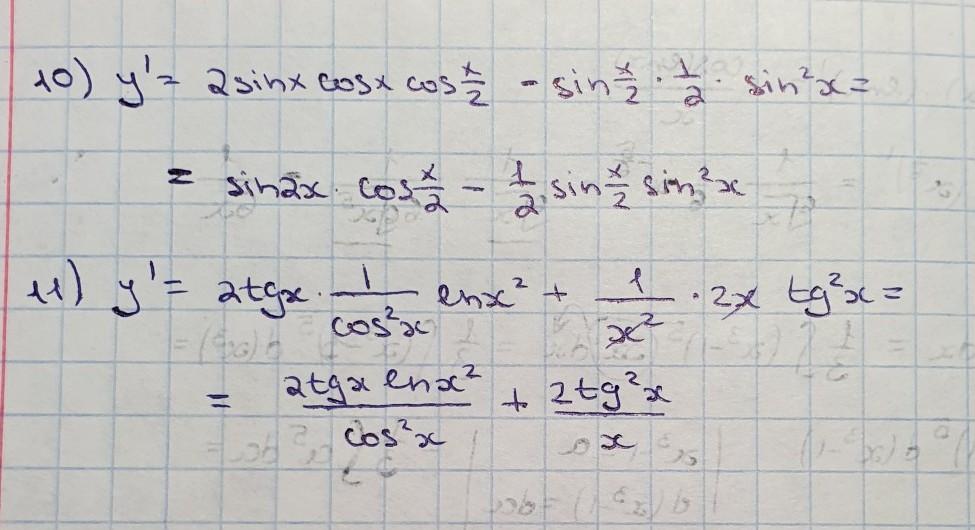 10) y' = 2sinx cosx cos x/2 - sin x/2 · 1/2 · sin²x =
= sin2x · cos x/2 - 1/2 sin x/2 sin²x
11) y' = 2tgx · 1/cos²x lnx² + 1/x² · 2x tg²x =
= 2tgx lnx²/cos²x + 2tg²x/x